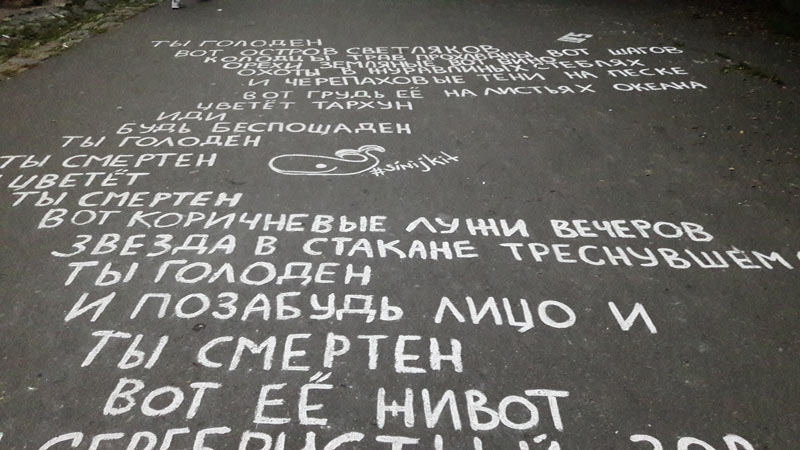 ТЫ ГОЛОДЕН
ВОТ ОСТРОВ СВЕТЛЯКОВ
КОЛОДЦЫ ТРАВ ПРОХЛАДНЫ ВОТ ШАГОВ
ОРЕХИ ЗЕМЛЯНЫЕ ВОТ ВИНО
ОХОТЫ В ЖУРАВЛИНЫХ СТЕБЛЯХ
И ЧЕРЕПАХОВЫЕ ТЕНИ НА ПЕСКЕ
ВОТ ГРУДЬ ЕЁ НА ЛИСТЬЯХ ОКЕАНА
ЦВЕТЁТ ТАРХУН
ИДИ
БУДЬ БЕСПОЩАДЕН
ТЫ ГОЛОДЕН
ТЫ СМЕРТЕН
ЦВЕТЁТ
#sinijkit
ТЫ СМЕРТЕН
ВОТ КОРИЧНЕВЫЕ ЛУЖИ ВЕЧЕРОВ
ЗВЕЗДА В СТАКАНЕ ТРЕСНУВШЕМ
ТЫ ГОЛОДЕН
И ПОЗАБУДЬ ЛИЦО И
ТЫ СМЕРТЕН
ВОТ ЕЁ НИВОТ
СЕРЕБРИСТЫЙ